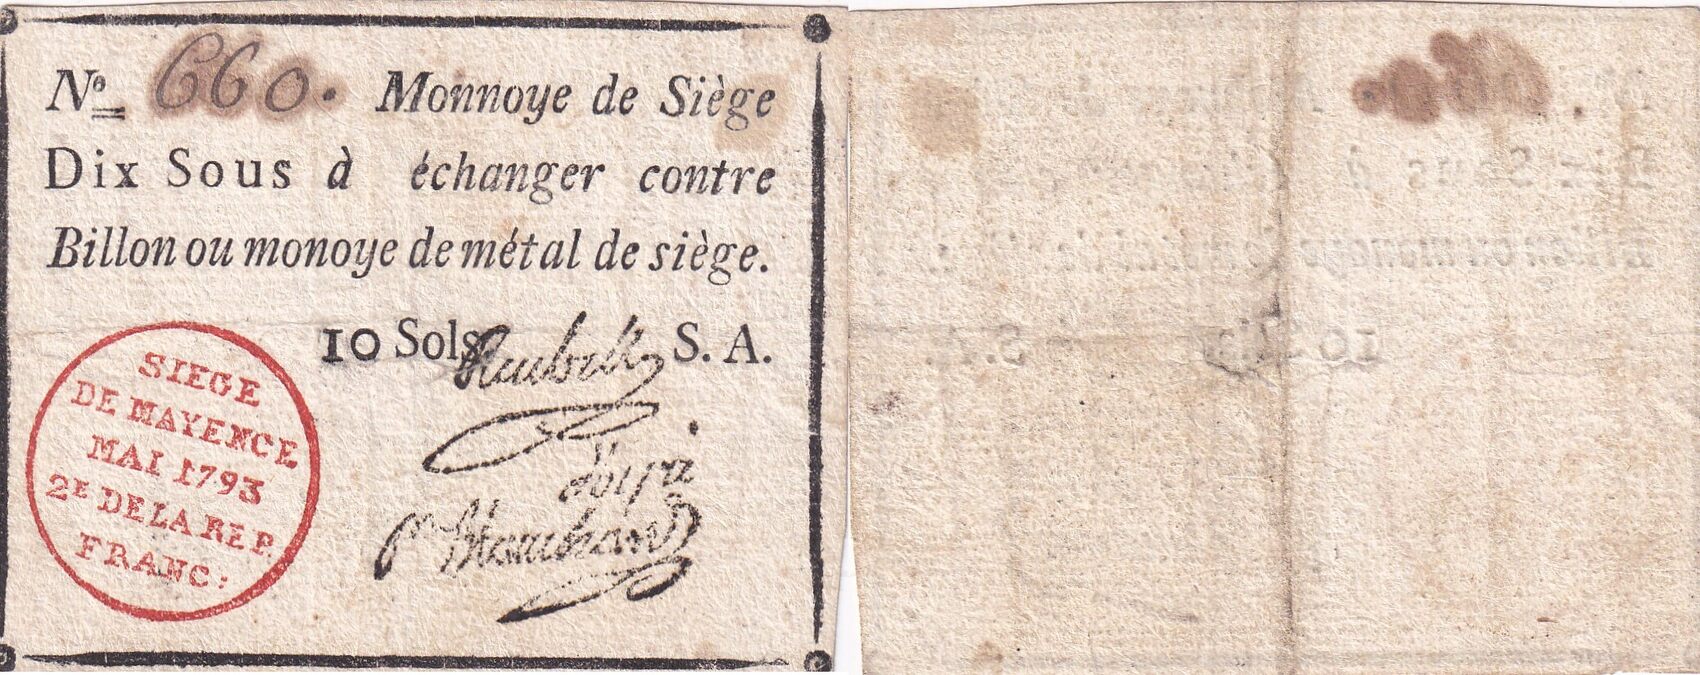 No 660. Monnoye de Siège
Dix Sous à échanger contre
Billon ou monoye de métal de siège.
10 Sols Reubell S. A.
SIEGE
DE MAYENCE
MAI 1793
2E DE LA REP.
FRANC: